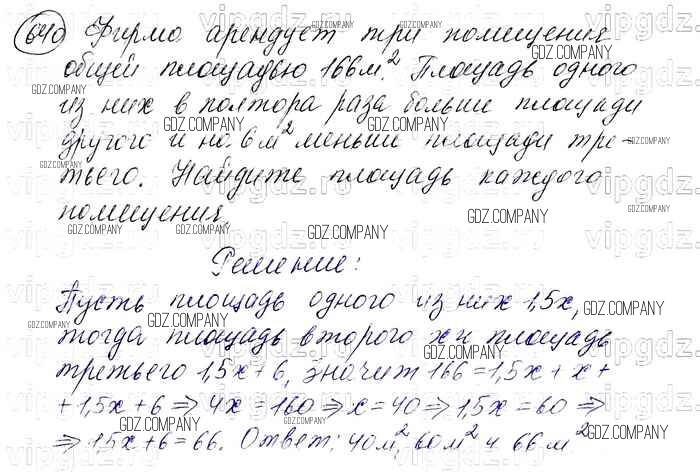 640 Фирма арендует три помещения
общей площадью 166 м². Площадь одного
из них в полтора раза больше площади
другого и на 6 м² меньше площади тре-
тьего. Найдите площадь каждого
помещения.
Решение:
Пусть площадь одного из них 1,5x,
тогда площадь второго x и площадь
третьего 1,5x + 6, значит 166 = 1,5x + x +
+ 1,5x + 6 ⇒ 4x = 160 ⇒ x = 40 ⇒ 1,5x = 60 ⇒
⇒ 1,5x + 6 = 66. Ответ: 40 м², 60 м² и 66 м²